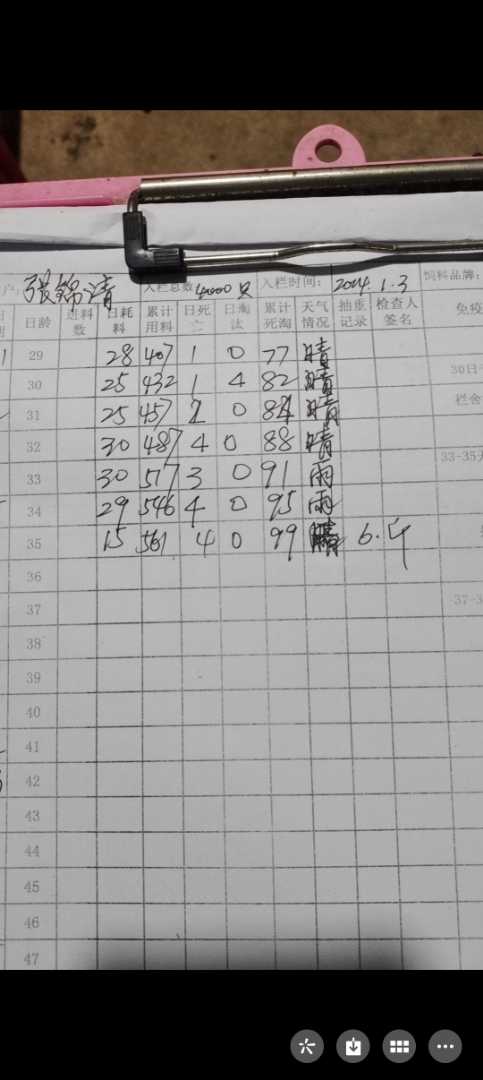 户: 张锦清 入栏总数 4000只 入栏时间: 2024.1.3 饲料品牌:
日龄 进料数 日耗料 累计用料 日死亡 日淘汰 累计死淘 天气情况 抽重记录 检查人签名 免疫
29 28 407 1 0 77 晴
30 25 432 1 4 82 晴 30日
31 25 457 2 0 84 晴 栏舍
32 30 487 4 0 88 晴
33 30 517 3 0 91 雨 33-35天
34 29 546 4 0 95 雨
35 15 561 4 0 99 晴 6.
36
37 37-3
38
39
40
41
42
43
44
45
46
47